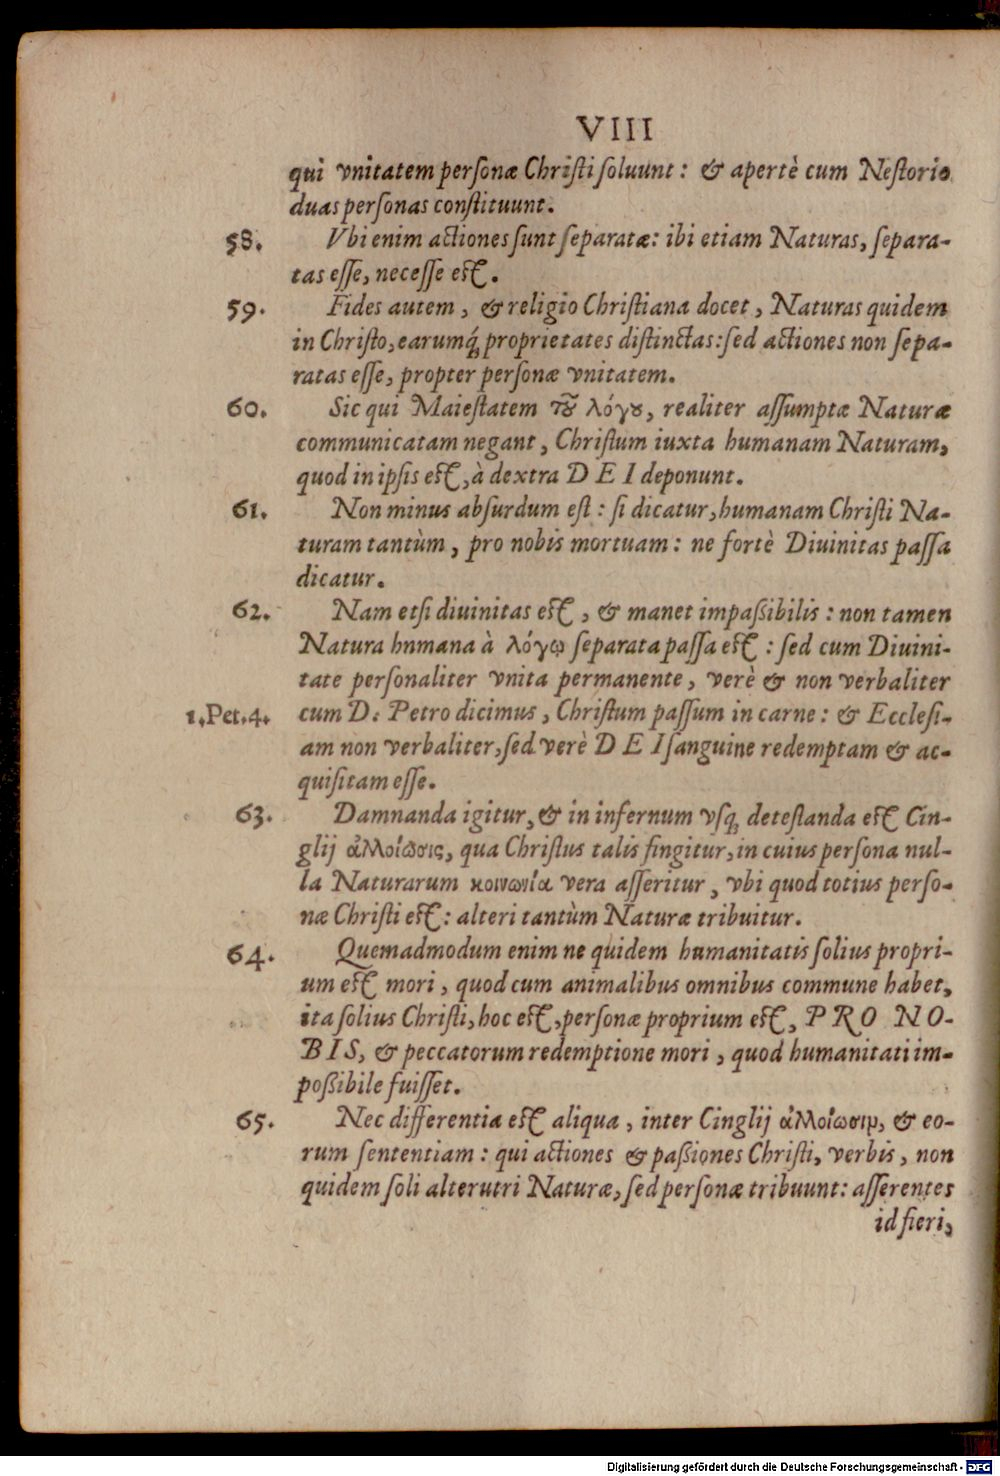 VIII
qui vnitatem personæ Christi soluunt: & apertè cum Nestorio
duas personas constituunt.
58. Vbi enim actiones sunt separatæ: ibi etiam Naturas, separa-
tas esse, necesse est.
59. Fides autem, & religio Christiana docet, Naturas quidem
in Christo, earumq́; proprietates distinctas: sed actiones non sepa-
ratas esse, propter personæ vnitatem.
60. Sic qui Maiestatem τȣ͂ λόγȣ, realiter assumptæ Naturæ
communicatam negant, Christum iuxta humanam Naturam,
quod in ipsis est, à dextra DEI deponunt.
61. Non minus absurdum est: si dicatur, humanam Christi Na-
turam tantùm, pro nobis mortuam: ne fortè Diuinitas passa
dicatur.
62. Nam etsi diuinitas est, & manet impaßibilis: non tamen
Natura hnmana à λόγῳ separata passa est: sed cum Diuini-
tate personaliter vnita permanente, verè & non verbaliter
1.Pet.4. cum D. Petro dicimus, Christum passum in carne: & Ecclesi-
am non verbaliter, sed verè DEI sanguine redemptam & ac-
quisitam esse.
63. Damnanda igitur, & in infernum vsq; detestanda est Cin-
glij ἀλλοίωσις, qua Christus talis fingitur, in cuius persona nul-
la Naturarum κοινωνία vera asseritur, vbi quod totius perso-
næ Christi est: alteri tantùm Naturæ tribuitur.
64. Quemadmodum enim ne quidem humanitatis solius propri-
um est mori, quod cum animalibus omnibus commune habet,
ita solius Christi, hoc est, personæ proprium est, PRO NO-
BIS, & peccatorum redemptione mori, quod humanitati im-
poßibile fuisset.
65. Nec differentia est aliqua, inter Cinglij ἀλλοίωσιμ, & eo-
rum sententiam: qui actiones & paßiones Christi, verbis, non
quidem soli alterutri Naturæ, sed personæ tribuunt: asserentes
id fieri,
Digitalisierung gefördert durch die Deutsche Forschungsgemeinschaft - DFG